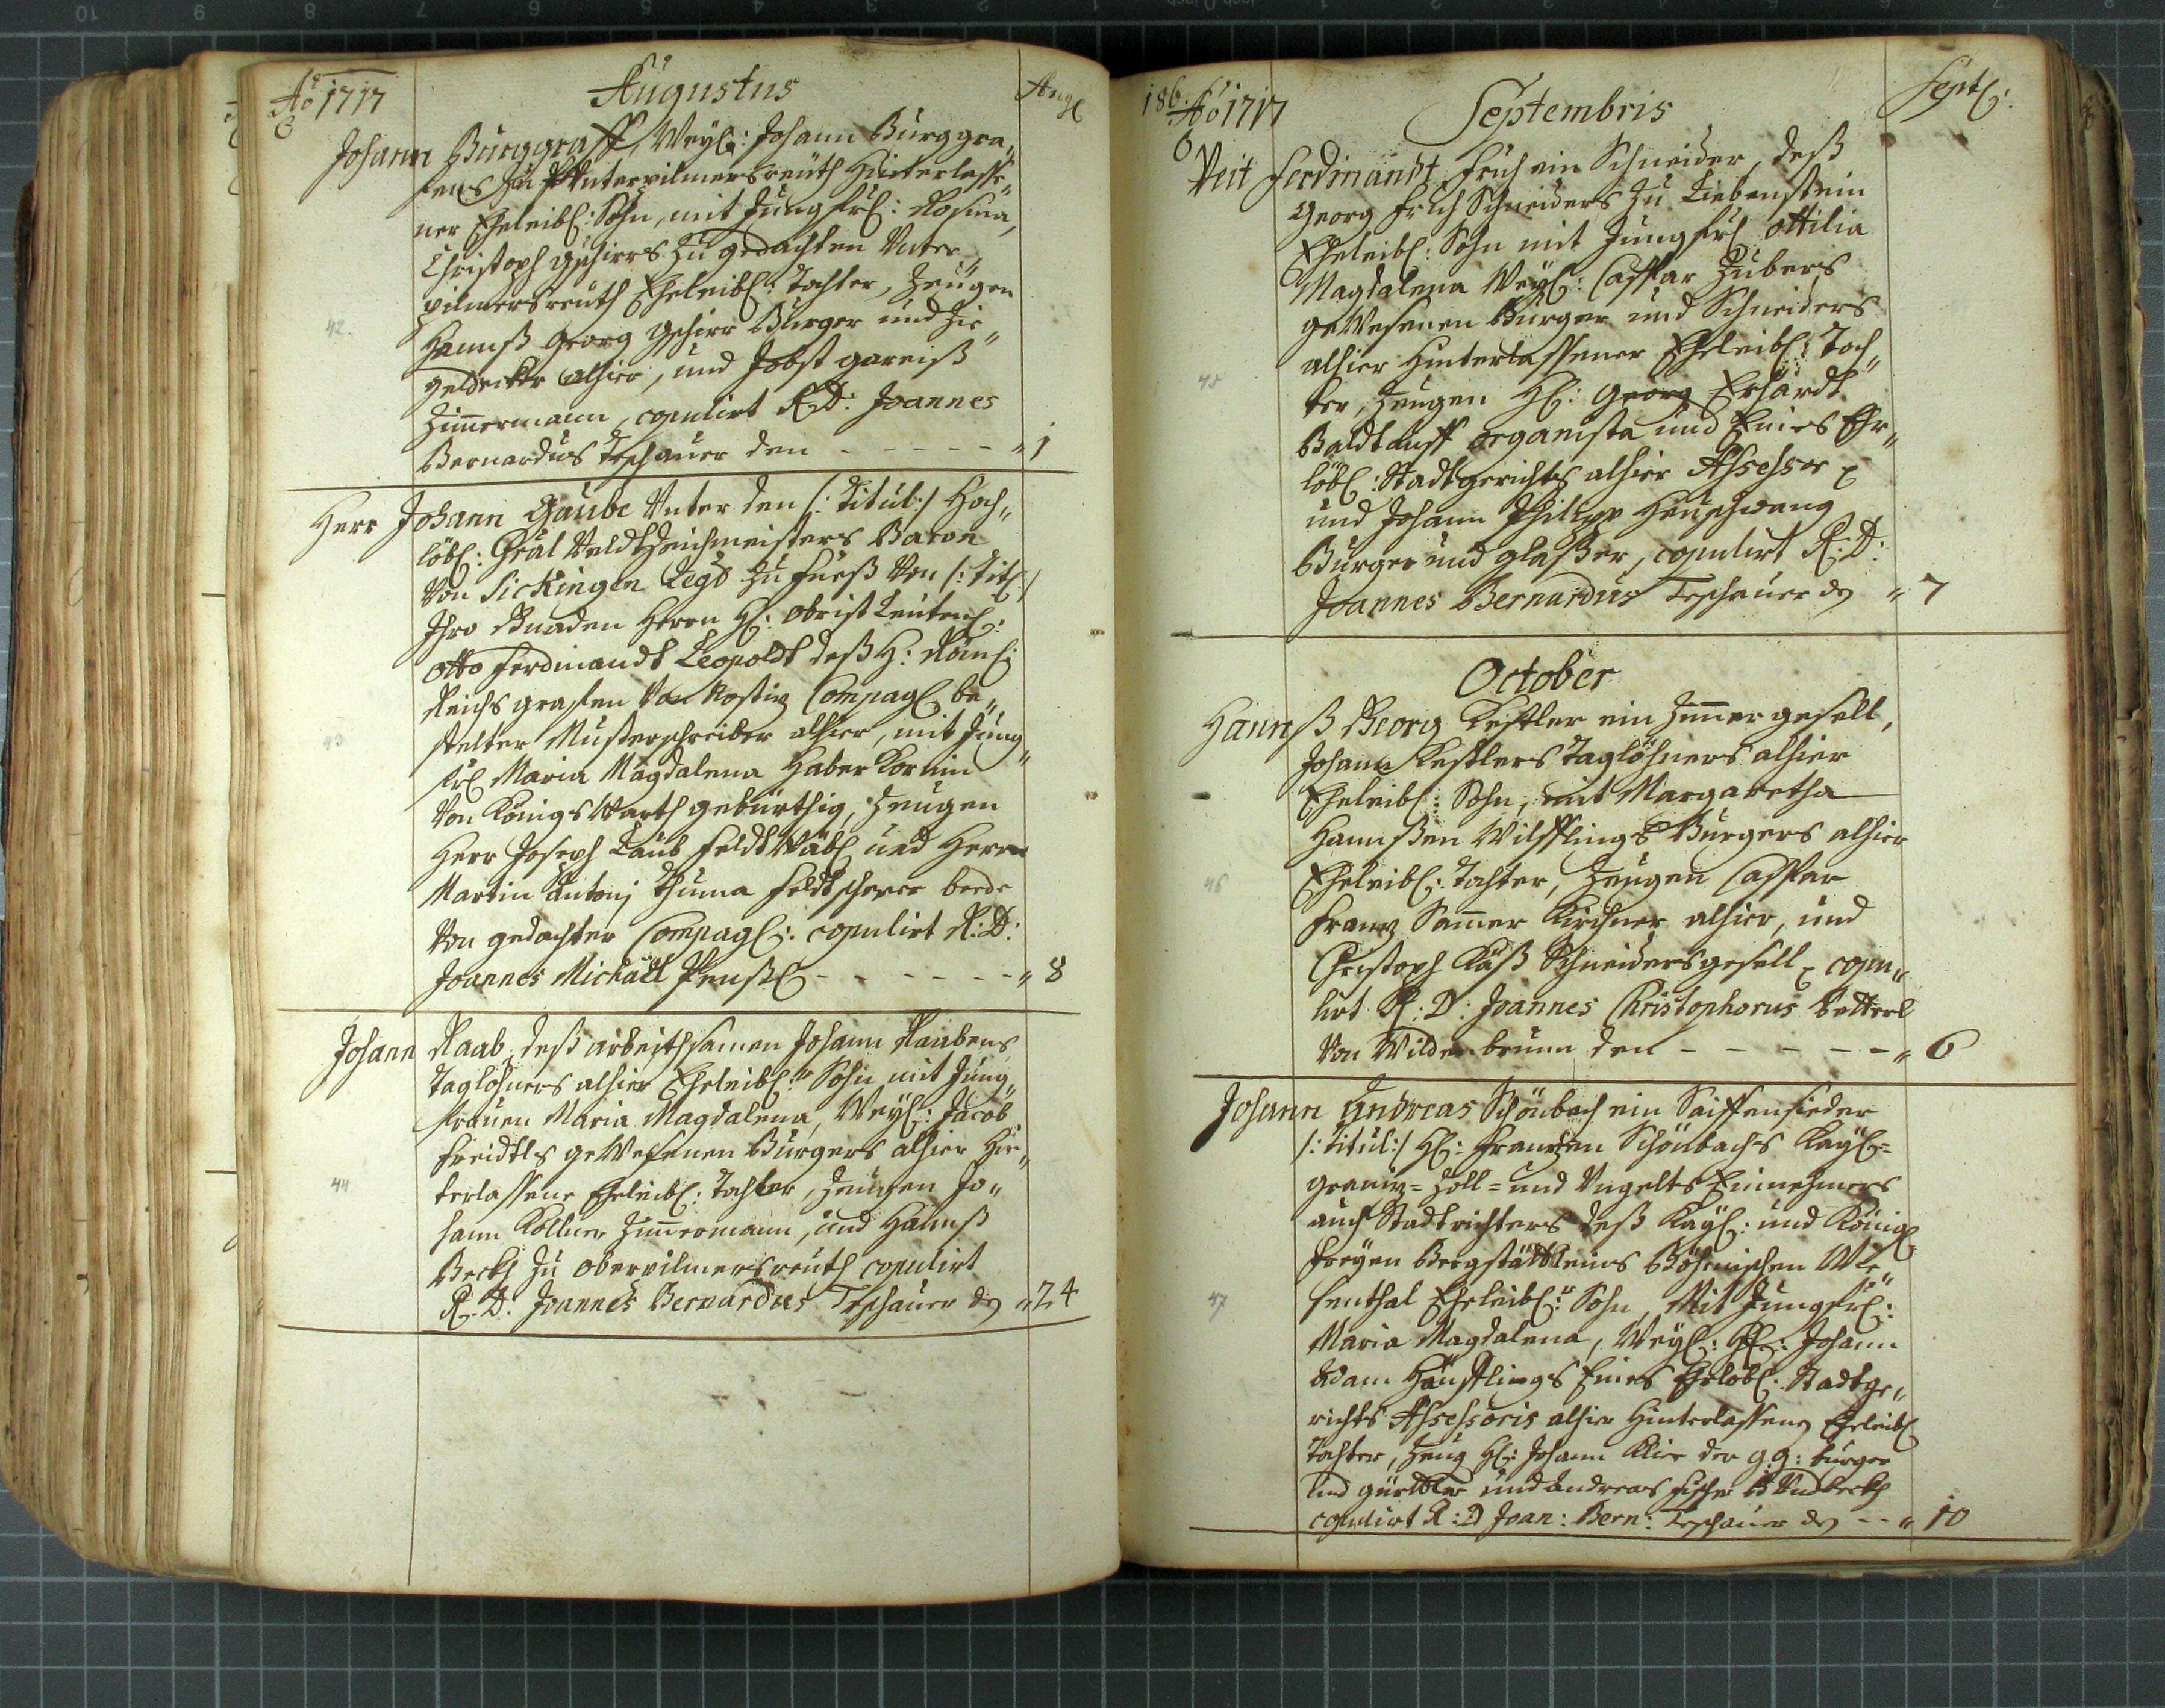 Aõ 1717
Augustus
Aug
Johann Burggraff, Weyl: Johann Burggra„
fens zu Untervilmersreuth Hinterlaße„
ner Eheleibl: Sohn, mit Jungfrl: Rosina,
Christoph Gschirrs zu gedachten Unter„
pilmersreuth Eheleibl: Tochter, Zeugen
Hannß Georg Gschirr Burger und Zie„
geldecker alhier, und Jobst gareiß
Zim̄ermann, copulirt R.D: Joannes
Bernardus Teschauer den - - - - - „ 1
42.
Herr Johann Gaube Unter den /: Titul:/ Hoch„
löbl: Gnāl Veldtzeichmeisters Baron
Von Sickingen Regt zu fueß Von /: Titl:/
Ihro Gnaden Herrn Hl: Obrist Leutenl:
Otto Ferdinandt Leopoldt deß H: Röml:
Reichs grafen Von Nostiz Compagl be„
stelter Musterschreiber alhier, mit Jung„
frl Maria Magdalena Haberkornin
Von Königs Warth gebürthig, Zeugen
Herr Joseph Taub feldt Wäbl und Herr
Martin Antonj Thuma Feldtscherer beede
Von gedachter Compagl: copulirt R:D:
Joannes Michaël - - - - - - „ 8
43
Johann Raab, deß arbeithsamen Johann Raabens
Taglöhners alhier Eheleibl:r Sohn mit Jung„
frauen Maria Magdalena, Weyl: Jacob
Freidtls geWesenen Burgers alhier Hin„
terlassene Eheleibl: Tochter, Zeugen Jo„
hann Kollner Zim̄ermann, und Hannß
Beckh zu Obervilmersreuth copulirt
R.D. Joannes Bernardus Teschauer den „ 24
44
186.
Aõ 1717
Septembris
Septl:
Veit Ferdinandt Früh ein Schneider, deß
Georg Früh Schneiders zu Liebenstein
Eheleibl: Sohn mit Jungfrl Ottilia
Magdalena Weyl: Casspar Hubers
geWesenen Burger und Schneiders
alhier hinterlassener Eheleibl: Toch„
ter, Zeugen Hl: Georg Erhardt
Baldtauff organista und Eines Ehr„
löbl: Stadtgerichts alhier Assessor
und Johann Philipp Heuschwang
Burger und glaßer, copulirt R:D:
Joannes Bernardus Teschauer den „ 7
45
October
Hannß Georg Kestler ein Zim̄ergesell,
Johann Kestlers Taglöhners alhier
Eheleibl: Sohn, mit Margaretha
Hannßen Wilfflings Burgers alhier
Eheleibl: Tochter, Zeugen Casspar
Franz Sam̄er Kirchner alhier, und
Christoph Käß Schneidersgesell, copu„
lirt R:D: Joannes Christophorus Vetterl
Von Wildenbrunn den - - - - - „ 6
46
Johann Andreas Schönbach ein Saiffensieder
/: titul:/ Hl: Frantzen Schönbachs Kayl=
graniz= Zoll= und Ungelts Einnehmers
auch Stadtrichters deß Kayl: und Königl
freyen Bergstättleins Böhmischen Wie„
senthal Eheleibl:r Sohn, Mit Jungfrl:
Maria Magdalena, Weyl: Hl: Johann
Adam Häufflings Eines Ehrlöbl: Stadtge„
richts Assessoris alhier hinterlassene Eheleibl
Tochter, Zeug Hl: Johann Klier der g.g: burger
und gürtler und Andreas Fischer
copulirt R:D Joan: Bern: Teschauer den - - „ 10
47